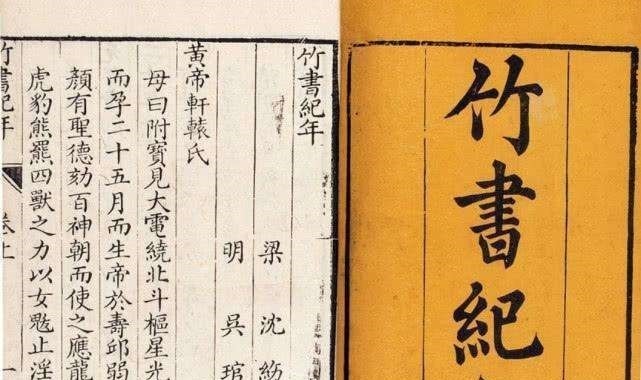 竹書紀
竹書紀年
梁 沈
明 吳 琯
黃帝軒轅氏
母曰附寶見大電繞北斗樞星光
而孕二十五月而生帝於壽邱弱
顏有聖德劾百神朝而使之應龍
虎豹熊羆四獸之力以女魃止淫
竹書紀年 卷上 一